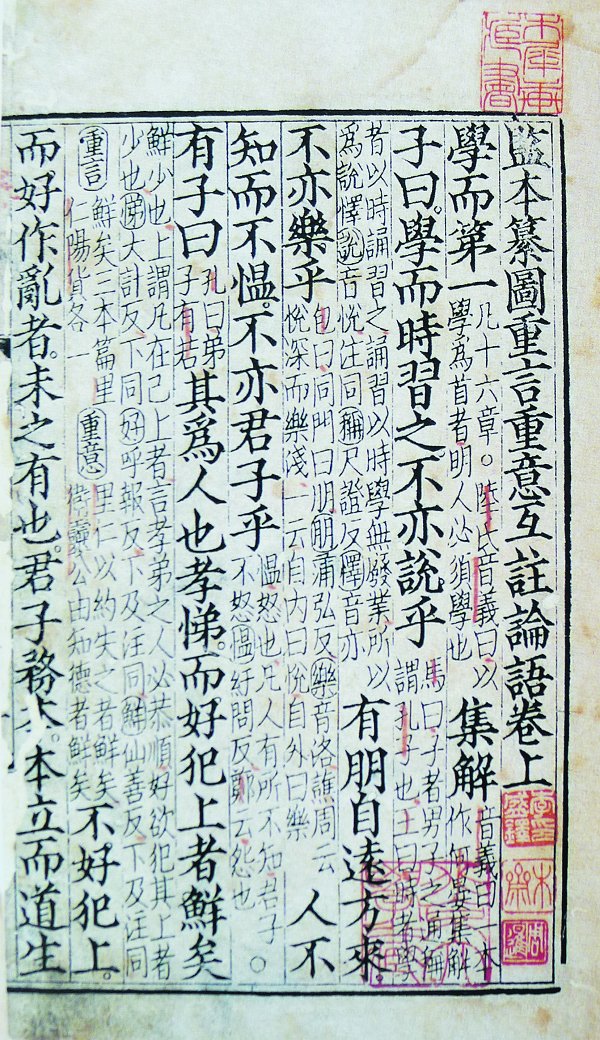 木犀軒藏書
監本纂圖重言重意互註論語卷上
李盛鐸印
木齋
周暹
學而第一
凡十六章○陸氏音義曰以
學爲首者明人必須學也
集解
音義曰一本
作何晏集解
子曰。學而時習之不亦說乎
馬曰子者男子之通稱
謂孔子也王曰時者學
者以時誦習之誦習以時學無廢業所以
爲說懌說音悅注同稱尺證反懌音亦
有朋自遠方來。
不亦樂乎
包曰同門曰朋朋蒲弘反樂音洛譙周云
悅深而樂淺一云自內曰悅自外曰樂
人不
知而不慍。不亦君子乎
慍怒也凡人有所不知君子
不怒慍紆問反鄭云怨也
○
有子曰
孔曰弟
子有若
其爲人也孝悌。而好犯上者鮮矣
鮮少也上謂凡在己上者言孝弟之人必恭順好欲犯其上者
少也悌大計反下同好呼報反下及注同鮮仙善反下及注同
重言
鮮矣三本篇里
仁陽貨各一
重意
里仁以約失之者鮮矣
衛靈公由知德者鮮矣
不好犯上。
而好作亂者。未之有也。君子務本。本立而道生